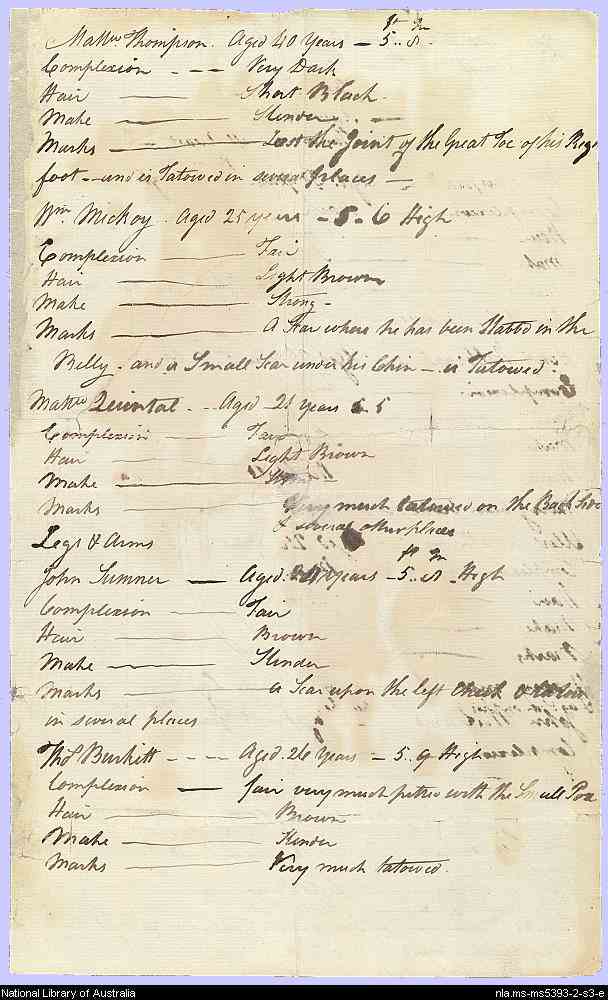 Mattw Thompson. Aged 40 Years — 5 ft .. 8 In.
Complexion - - - Very Dark
Hair — Short Black.
Make — Slender
Marks — Lost the Joint of the Great Toe of his Right
foot — and is Tatowed in several places —
Wm. Mickoy. Aged 25 years — 5. 6 High
Complexion — Fair
Hair — Light Brown
Make — Strong —
Marks — A Scar where he has been Stabbd in the
Belly. and a Small Scar under his Chin — is Tatowed.
Mattw Quintal. - - Aged 21 years 5 5
Complexion — Fair
Hair — Light Brown
Make —
Marks — Very much tatowed on the Back Side
& several other places
Legs & Arms
John Sumner — Aged 24 years — 5 ft .. 8 In High
Complexion — Fair
Hair — Brown
Make — Slender
Marks — a Scar upon the left Cheek &
in several places
Thos Burkitt - - - Aged. 26 Years — 5.. 9 High
Complexion — fair very much pitted with the Small Pox
Hair — Brown
Make — Slender
Marks — Very much tatowed.
National Library of Australia
nla.ms-ms5393-2-s3-e